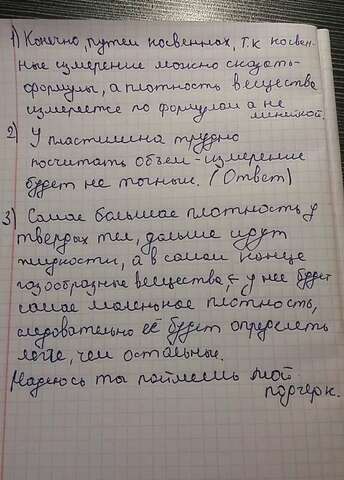 1) Конечно, путем косвенных, т.к косвен-
ные измерение можно сказать-
формулы, а плотность вещества
измеряется по формулам а не
линейкой.
2) У пластилина трудно
посчитать объем - измерение
будет не точным. (Ответ)
3) Самае большае плотность у
твердых тел, дальше идут
жидкости, а в самом конце
газообразные вещества, ← у нее будет
самае маленькое плотность,
следовательно её будет определеть
легче, чем остальные.
Надеюсь ты поймешь мой
подчерк.